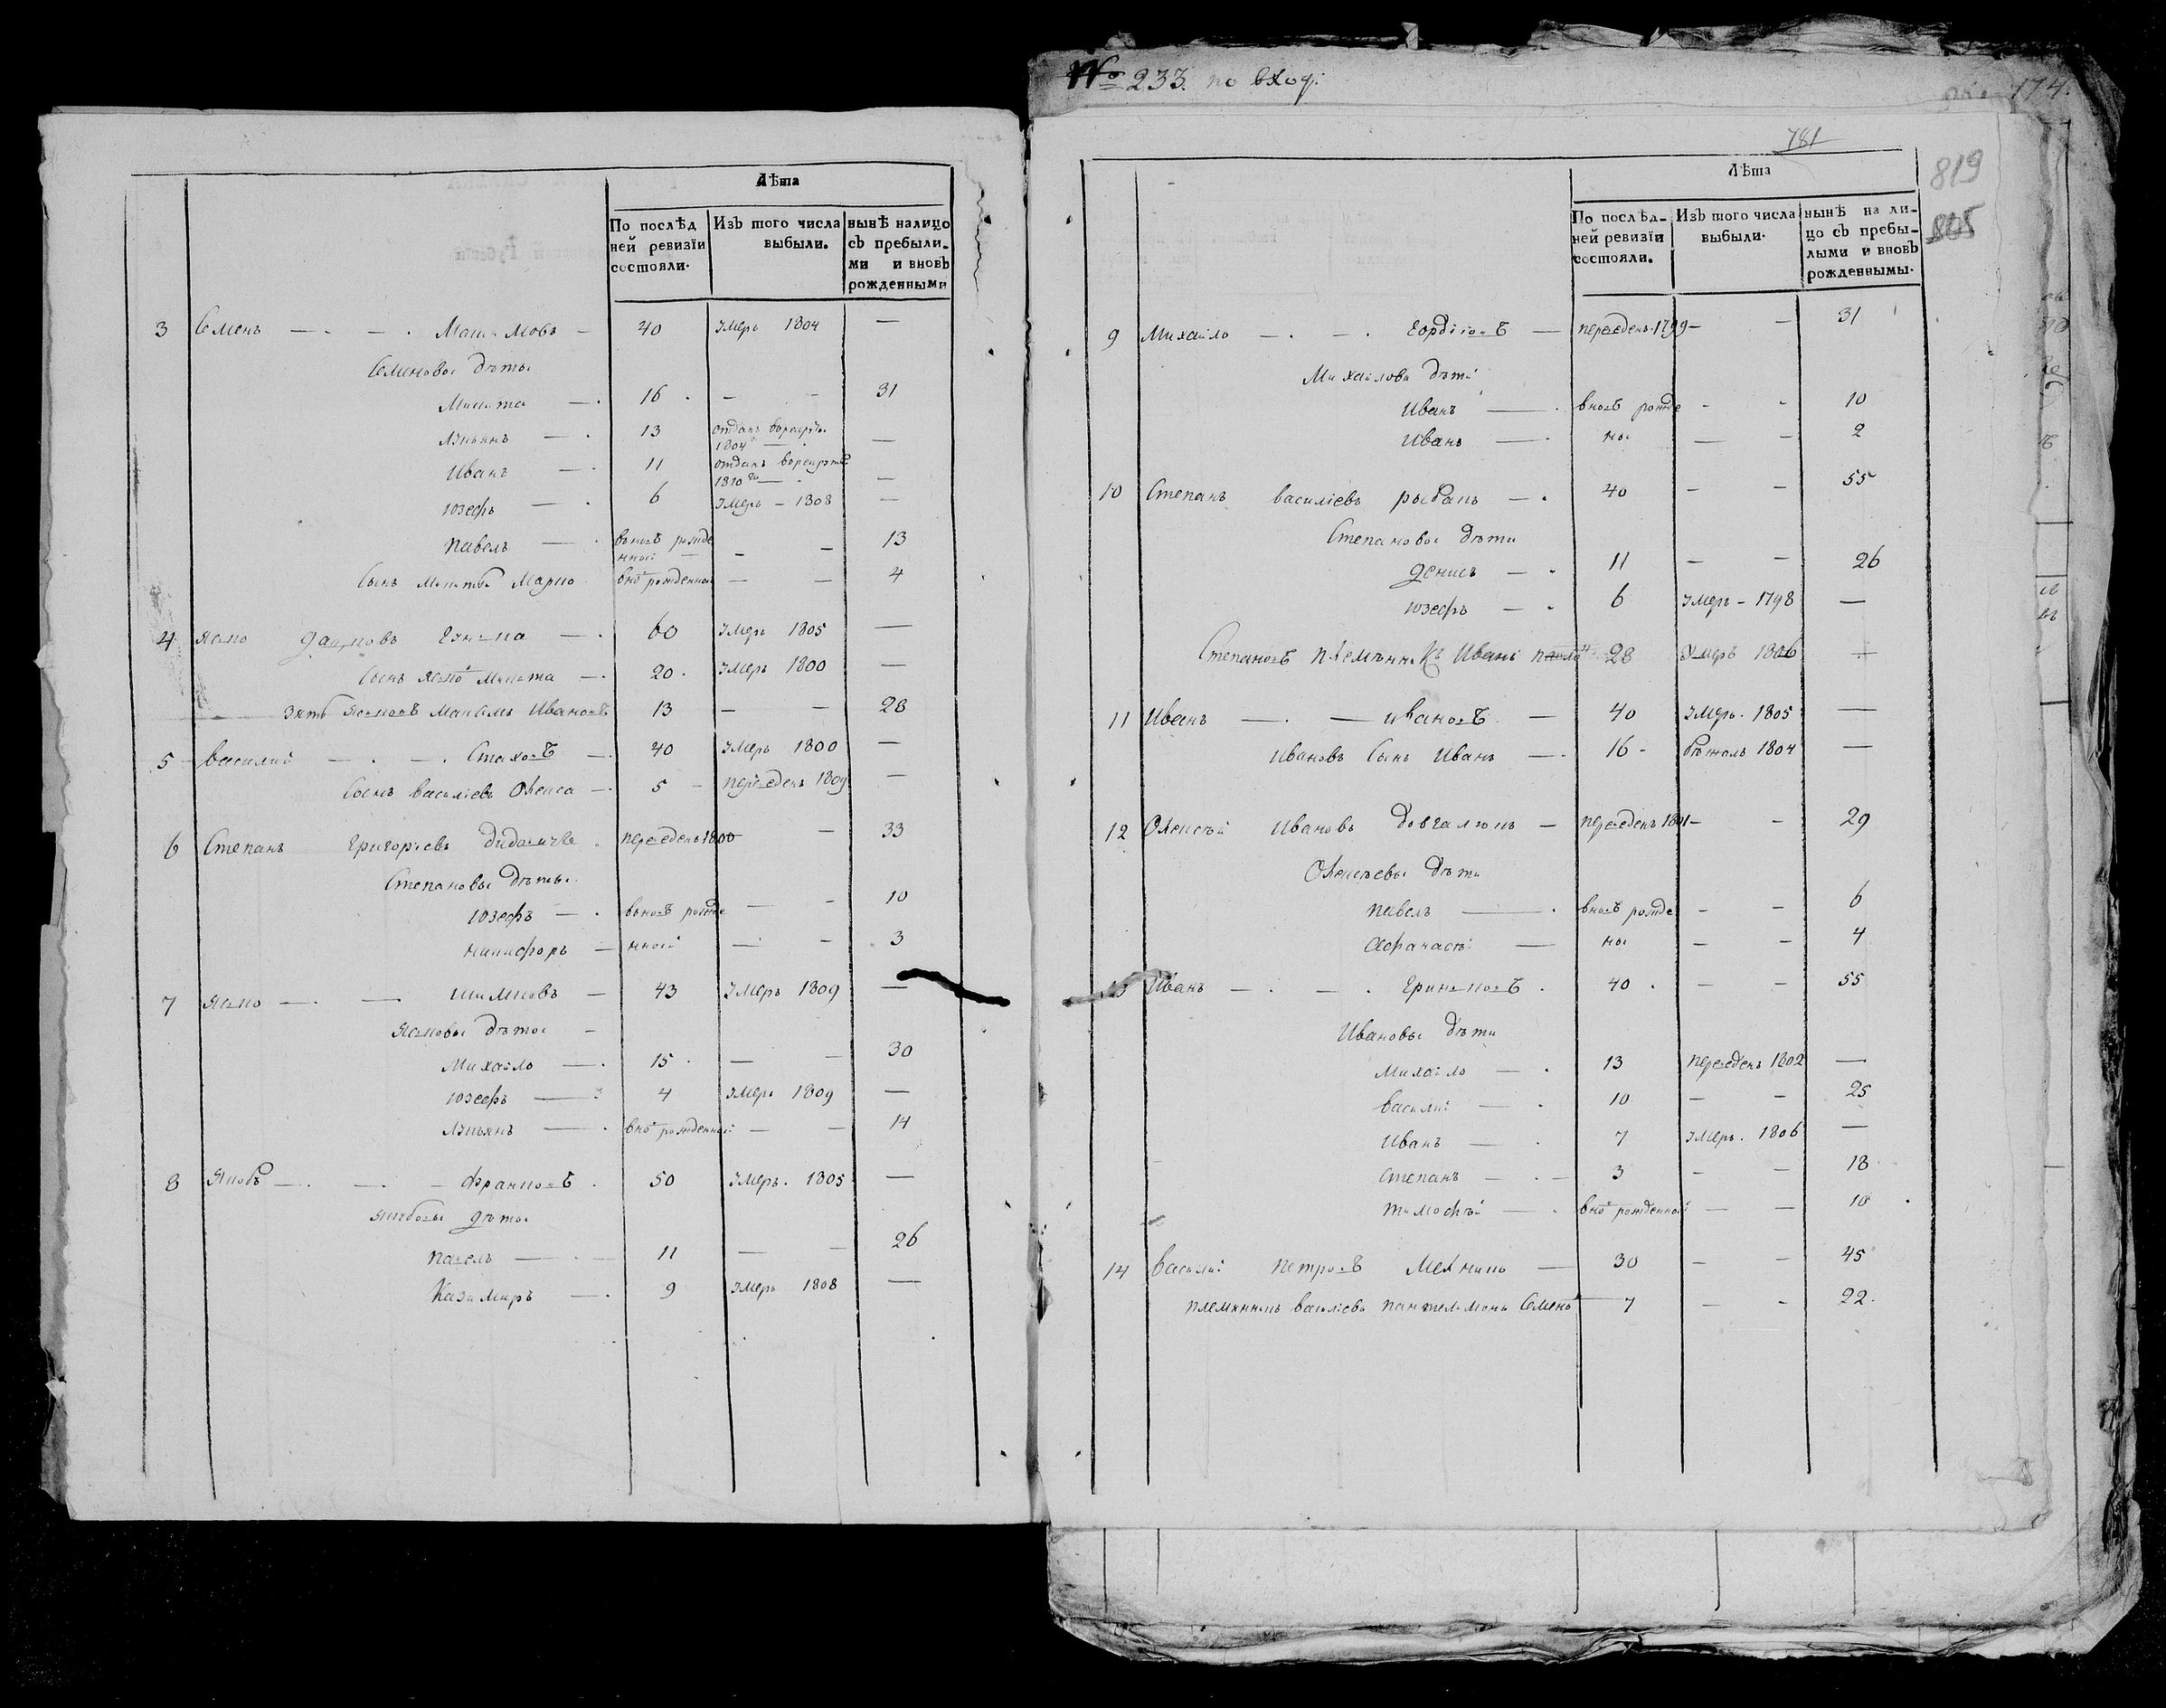 Лѣта
По послѣд
ней ревизіи
состояли.
Изъ того числа
выбыли.
нынѣ налицо
съ пребыли-
ми и вновь
рожденными
3 Семенъ — — 40 умеръ 1804 —
Семеновы дѣты
Микита — 16 — — 31
Лукьянъ — 13 отданъ
1804 — —
Иванъ — 11 отданъ
1810 го — —
юзефъ — 6 умеръ — 1808 —
павелъ — вновъ рожде
нной — — 13
Сынъ Марко внов рожденной — — 4
4 Яско — 60 умеръ 1805 —
Сынъ Ясков Микита — 20 умеръ 1800 —
Максимъ Ивановъ 13 — — 28
5 василий — — Стаховъ — 40 умеръ 1800 —
Сынъ василіевъ Олекса — 5 переведенъ 1809 —
6 Степанъ Григоріевъ переведенъ 1800 — 33
Степановы дѣты
юзефъ — вновъ рожде — — 10
никифоръ — нной — — 3
7 Яско — — 43 умеръ 1809 —
Ясковы дѣты —
Михайло — 15 — — 30
юзефъ — 4 умеръ 1809 —
Лукьянъ — внов рожденной — — 14
8 Якобъ — — — Франковъ 50 умеръ 1805 —
Якубовы дѣты
павелъ — 11 — — 26
Казимиръ — 9 умеръ 1808 —
№ 233. по вход:
174.
781
819
805
Лѣта
По послѣд-
ней ревизіи
состояли.
Изъ того числа
выбыли.
нынѣ на ли-
цо съ пребы-
лыми и вновь
рожденнымы.
9 Михайло — — Гордіовъ — переведенъ 1799 — — 31
Михайлови дѣти
Иванъ — вновъ рожде — — 10
Иванъ — ны — — 2
10 Степанъ василіевъ рыбакъ — 40 — — 55
Степановы дѣти
денисъ — 11 — — 26
юзефъ — 6 умеръ — 1798 —
Степановъ племѣнникъ Иванъ 28 умеръ 1806 —
11 Иванъ — — ивановъ — 40 умеръ. 1805 —
Ивановъ Сынъ Иванъ — 16 — бѣжалъ 1804 —
12 Олексѣй Ивановъ довгалюкъ — переведенъ 1801 — — 29
Олексѣевы дѣти
павелъ — вновъ рожде — — 6
Афанасѣй — ны — — 4
13 Иванъ — — 40 — — 55
Ивановы дѣти
Михайло — 13 переведенъ 1802 —
василий — 10 — — 25
Иванъ — 7 умеръ. 1806 —
Степанъ — 3 — — 18
тимофѣй — внов рожденной — — 10
14 василий петровъ — 30 — — 45
племянникъ василіевъ пантелимонъ Семенов 7 — — 22